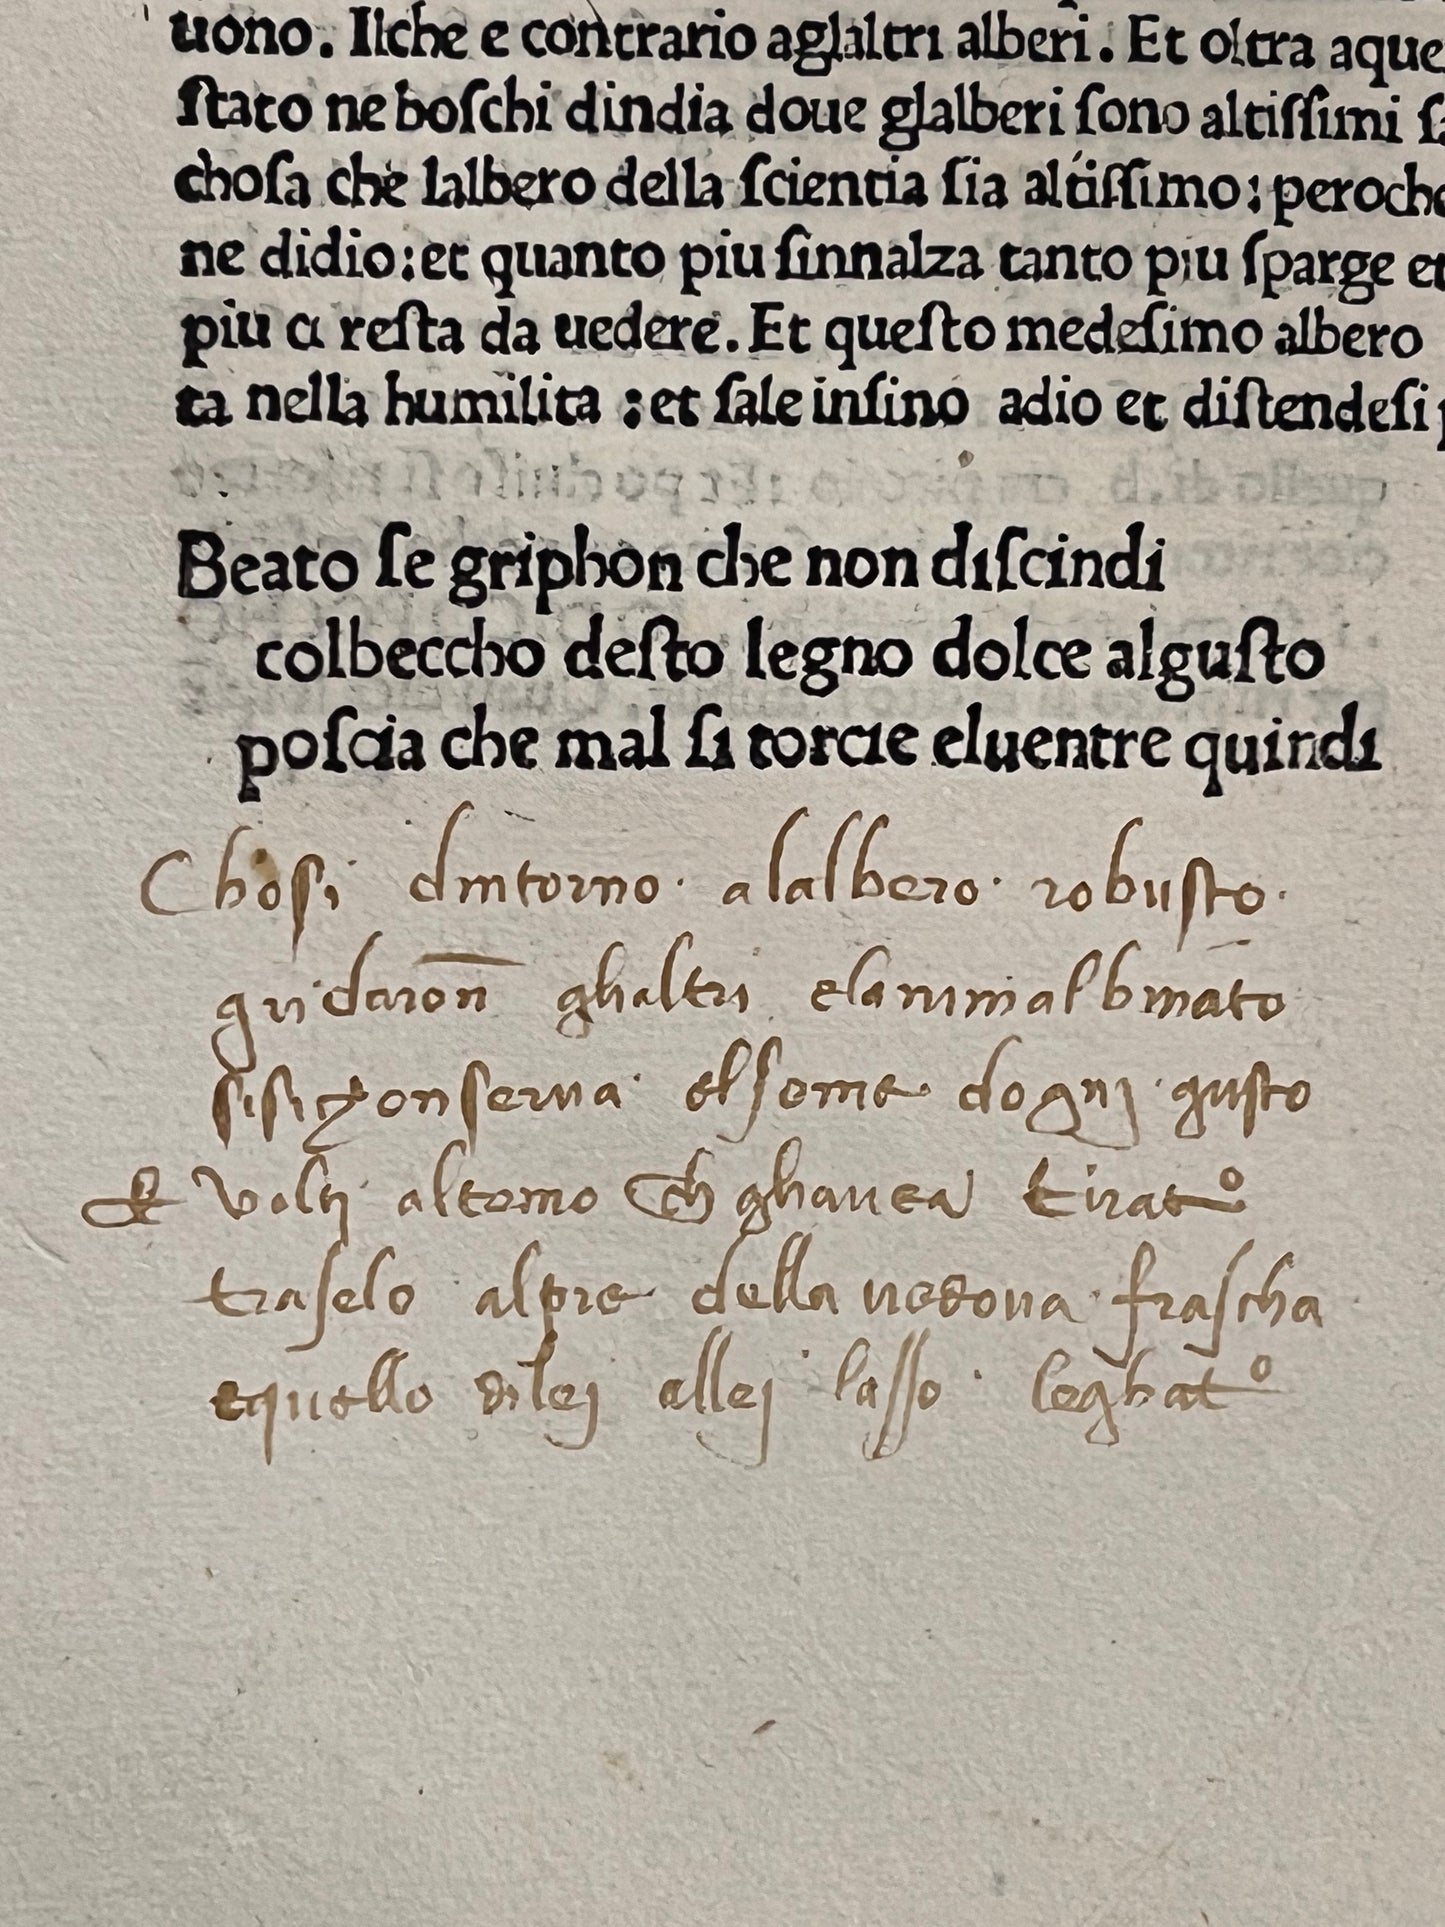 uono. Ilche e contrario aglaltri alberi. Et oltra aque
ſtato ne boſchi dindia doue glalberi ſono altiſſimi
choſa che lalbero della ſcientia ſia altiſſimo: peroche
ne didio: et quanto piu ſinnalza tanto piu ſparge et
piu ci reſta da uedere. Et queſto medeſimo albero
ta nella humilita : et ſale inſino adio et diſtendeſi
Beato ſe griphon che non diſcindi
colbeccho deſto legno dolce alguſto
poſcia che mal ſi torcie eluentre quindi
Choſi dintorno · alalbero · robuſto ·
gridaron̄ ghaltri elanimal binato
ſiſi chonſerua · elſeme dognj · guſto
& voltj altemo ch ghauea tiratᵒ
traſelo alpie della uedoua fraſcha
equello dilej allej laſſo · leghatᵒ